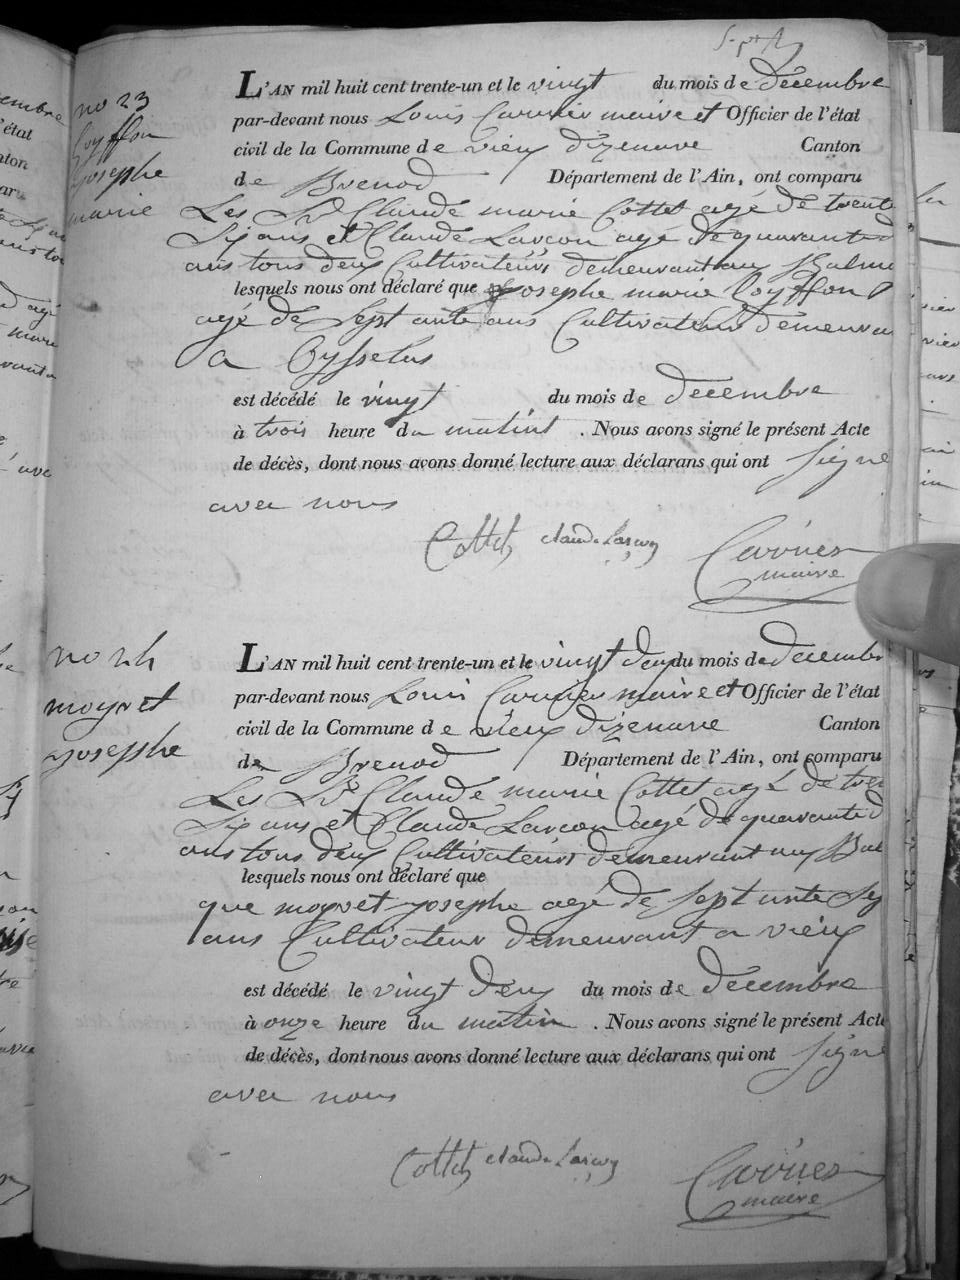 no 23
Goyffon
Josephe
marie
L'AN mil huit cent trente-un et le vingt du mois de décembre
par-devant nous Louis Carrier maire et Officier de l'état
civil de la Commune de vieux dizenave Canton
de Brenod Département de l'Ain, ont comparu
Les Sr Claude marie Cottet agé de trente
Six ans et Claude Larçon agé de quarante d
ans tous deux Cultivateurs demeurant au Balme
lesquels nous ont déclaré que Josephe marie Goyffon
agé de Sept ante ans Cultivateur demeuran
a
est décédé le vingt du mois de decembre
à trois heure du matin . Nous avons signé le présent Acte
de décès, dont nous avons donné lecture aux déclarans qui ont Signe
avec nous
Cottet Claude Larçon Carrier
maire
no 24
moyret
Josephe
L'AN mil huit cent trente-un et le vingt deux du mois de decembr
par-devant nous Louis Carrier maire et Officier de l'état
civil de la Commune de vieux dizenave Canton
de Brenod Département de l'Ain, ont comparu
Les Sr Claude marie Cottet agé de tren
Six ans et Claude Larçon agé de quarante d
ans tous deux Cultivateurs demeurant au Bal
lesquels nous ont déclaré que
que moyret Josephe agé de Sept ante Six
ans Cultivateur demeurant a vieux
est décédé le vingt deux du mois de decembre
à onze heure du matin . Nous avons signé le présent Acte
de décès, dont nous avons donné lecture aux déclarans qui ont Signe
avec nous
Cottet Claude Larçon Carrier
maire